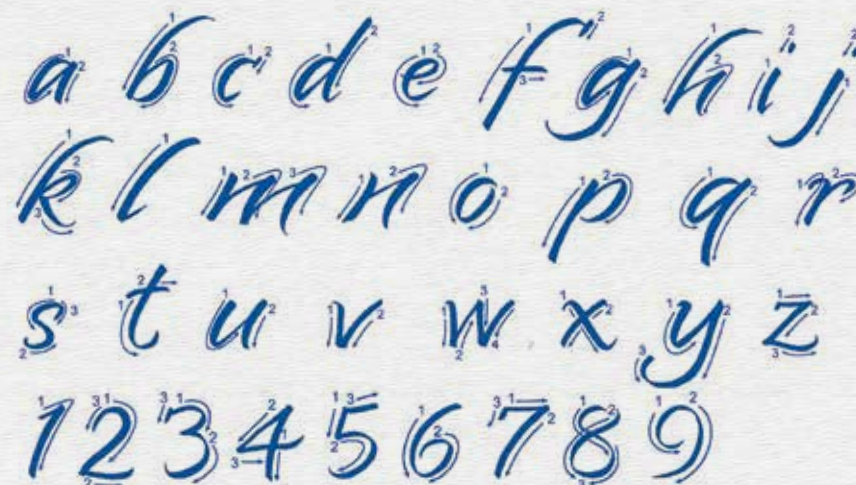 a b c d e f g h i j
k l m n o p q r
s t u v w x y z
1 2 3 4 5 6 7 8 9